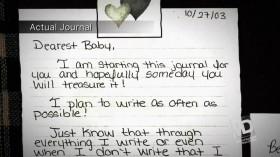 Actual Journal
10/27/03
Dearest Baby,
I am starting this journal for
you and hopefully someday you
will treasure it!
I plan to write as often as
possible!
Just know that through
everything I write or even
when I don't write that I